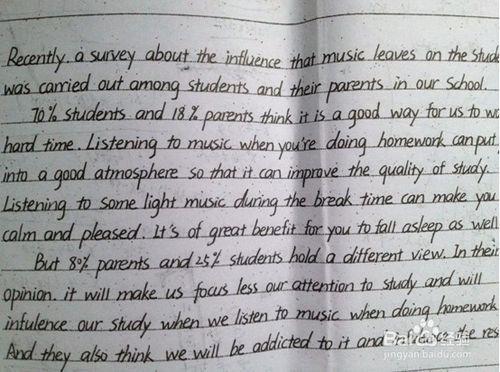 Recently, a survey about the influence that music leaves on the
was carried out among students and their parents in our school.
70% students and 18% parents think it is a good way for us to
hard time. Listening to music when you're doing homework can put
into a good atmosphere so that it can improve the quality of study.
Listening to some light music during the break time can make you
calm and pleased. It's of great benefit for you to fall asleep as well
But 80% parents and 25% students hold a different view. In their
opinion. it will make us focus less our attention to study and will
infulence our study when we listen to music when doing homework
And they also think we will be addicted to it and the
Baidu 经验
jingyan.baidu.com